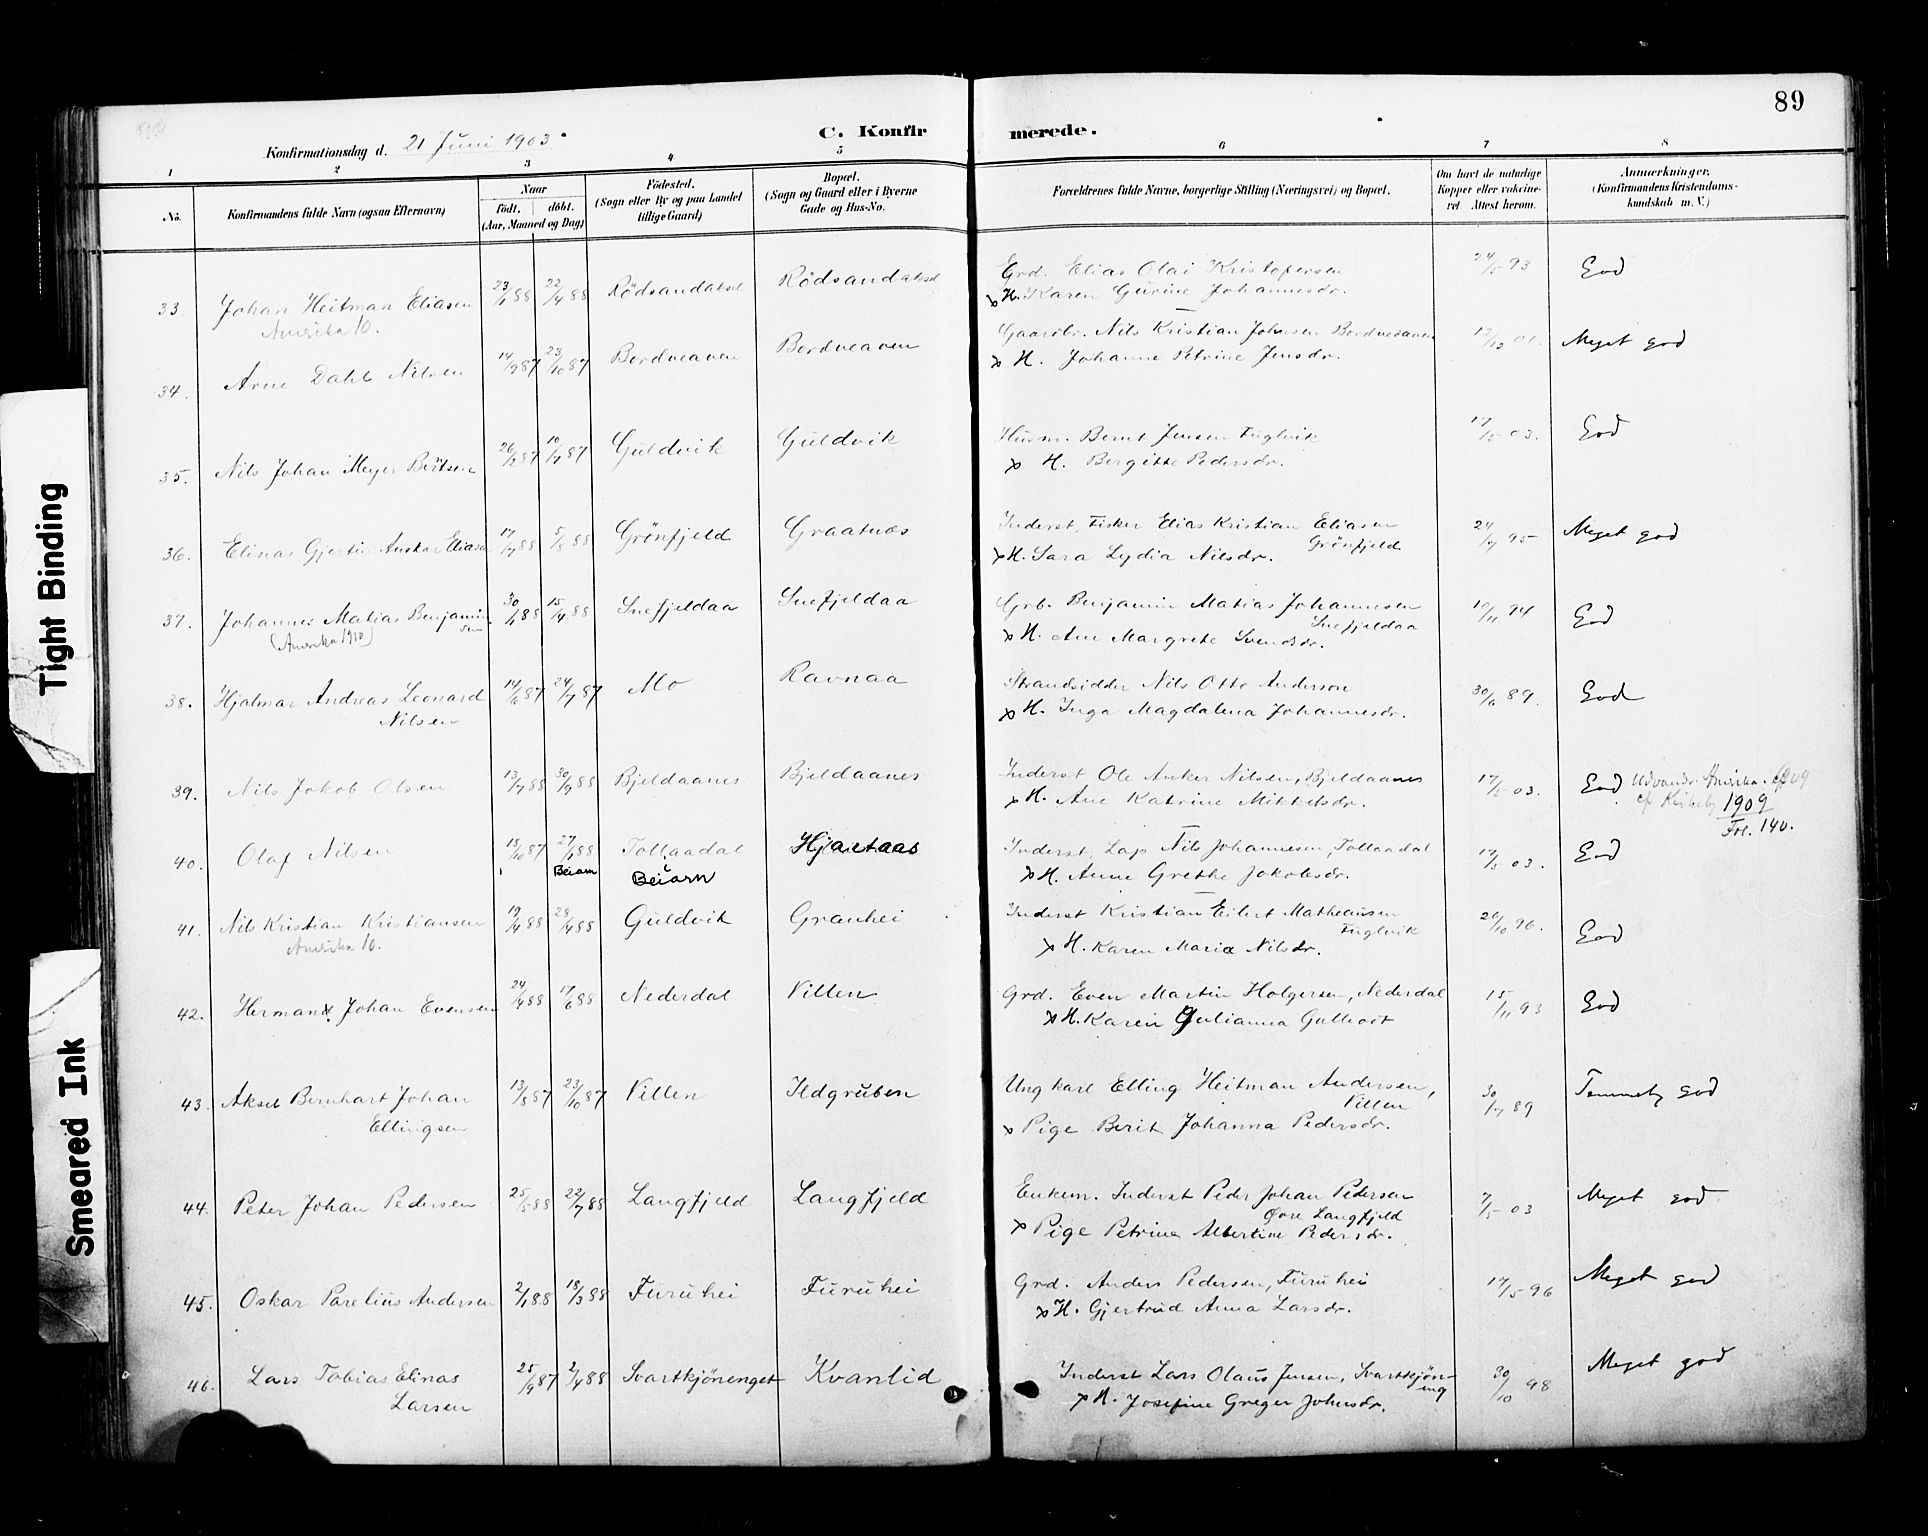 89
C. Konfirmerede.
Konfirmationsdag d. 21 Juni 1903.
1 2 3 4 5 6 7 8
No.
Konfirmandens fulde Navn (ogsaa Efternavn)
Naar
födt. döbt.
(Aar, Maaned og Dag)
Födested.
(Sogn eller By og paa Landet
tillige Gaard)
Bopæl.
(Sogn og Gaard eller i Byerne
Gade og Hus-No.
Forældrenes fulde Navne, borgerlige Stilling (Næringsvei) og Bopæl.
Om havt de naturlige
Kopper eller vakcine-
ret Attest herom.
Anmærkninger,
(Konfirmandens Kristendoms-
kundskab m. V.)
33. Johan Heitman Eliasen 23/1 88 22/4 88 Rödsandaksl Rödsandaksl Grd. Elias Olai Kristofersen 24/5 93 God
Amerika 10. x H. Karen Gurine Johannesdr.
34. Arne Dahl Nilsen 14/9 87 23/10 87 Bordveaven Bordveaven Gaardbr. Nils Kristian Johnsen Bordveaven 12/12 01. Meget god
x H. Johanne Petrine Jensdr.
35. Nils Johan Meyer Berntsen 26/2 87 10/7 87 Guldvik Guldvik Husm. Bernt Jensen Fuglvik 17/5 03. God
x H. Bergitte Pedersdr.
36. Elinas Gjertin Anskar Eliasen 17/7 88 5/8 88 Grönfjeld Graatnæs Inderst, Fisker Elias Kristian Eliasen 24/7 95 Meget god
Grönfjeld
x H. Sara Lydia Nilsdr.
37. Johannes Matias Benjaminsen 30/1 88 15/4 88 Snefjeldaa Snefjeldaa Grb. Benjamin Matias Johannesen 10/11 94 God
(Amerika 1910) Snefjeldaa
x H. Ane Margrete Svendsdr.
38. Hjalmar Andreas Leonard 14/6 87 24/7 87 Mo Ravnaa Strandsidder Nils Otto Anderson 30/6 89. God
Nilsen x H. Inga Magdalena Johannesdr.
39. Nils Jakob Olsen 13/7 88 30/9 88 Bjeldaanes Bjeldaanes Inderst Ole Anker Nilsen, Bjeldaanes 17/5 03. God Udvandr. Amerika.
x H. Ane Katrine Mikkelsdr. 1909
Fol. 140.
40. Olaf Nilsen 18/10 87 27/1 88 Tollaadal Hjartaas Inderst, Lap Nils Johannesen, Tollaadal 17/5 03. God
Beiarn Beiarn x H. Anne Grethe Jakobsdr.
41. Nils Kristian Kristiansen 19/4 88 28/4 88 Guldvik Granhei Inderst Kristian Eilert Matheusen 26/10 96. God
Amerika 10. Fuglvik
x H. Karen Maria Nilsdr.
42. Herman Johan Evensen 24/4 88 17/6 88 Nederdal Villen Grd. Even Martin Holgersen, Nederdal 15/11 93 God
x H. Karen Julianna Gullvedt
43. Aksel Bernhart Johan 13/8 87 23/10 87 Villen Ildgruben Ungkarl Elling Heitman Andersen, 30/7 89 Temmelig god
Ellingsen Villen
x Pige Berit Johanna Pedersdr.
44. Peter Johan Pedersen 25/5 88 22/7 88 Langfjeld Langfjeld Enkem. Inderst Peder Johan Pedersen 7/5 03 Meget god
Øvre Langfjeld
x Pige Petrine Albertine Pedersdr.
45. Oskar Parelius Andersen 2/1 88 18/3 88 Furuhei Furuhei Grd. Anders Pedersen, Furuhei 17/5 96 Meget god
x H. Gjertrud Anna Larsdr.
46. Lars Tobias Elinas 25/9 87 2/4 88 Svartkjönenget Kvanlid Inderst Lars Olaus Jensen, Svartkjön- 30/10 98 Meget god
Larsen eng
x H. Josefine Greger Johnsdr.
Tight Binding
Smeared Ink